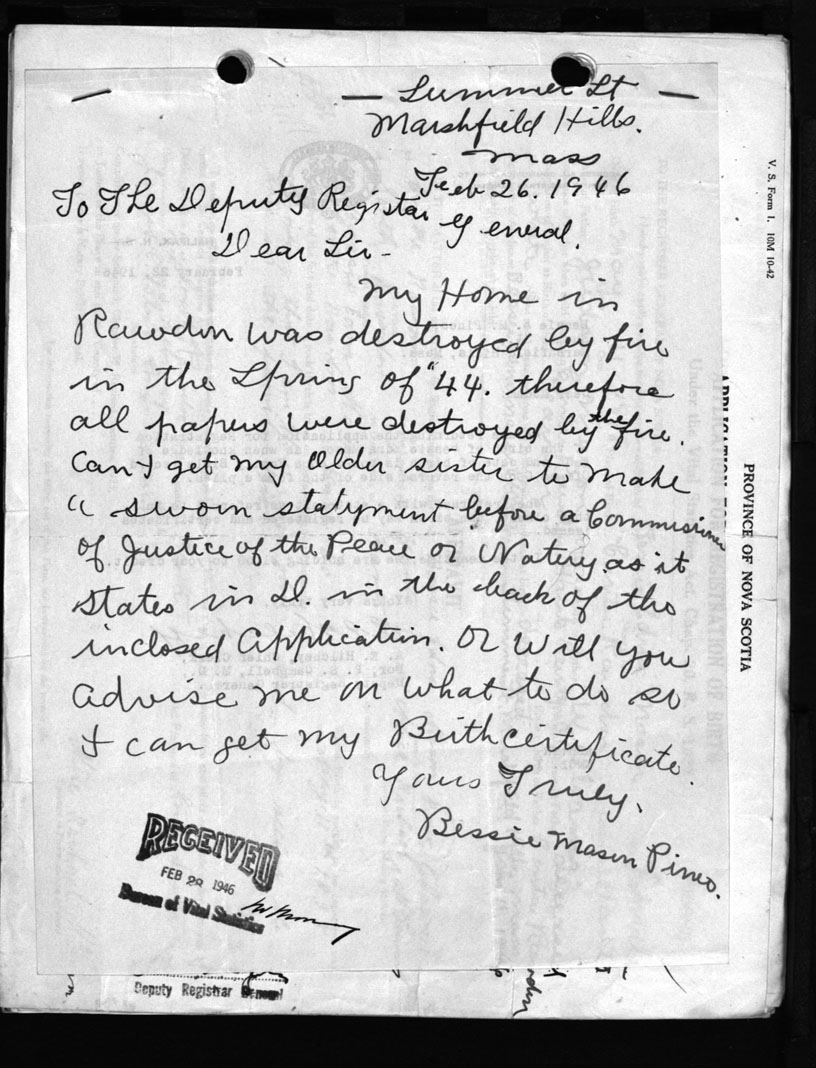 Summer St
Marshfield Hills.
Mass
Feb 26. 1946
To The Deputy Registar General.
Dear Sir-
My Home in
Rawdon was destroyed by fire
in the Spring of "44. therefore
all papers were destroyed by the fire.
Can I get my older sister to make
a sworn statyment before a Commisioner
of Justice of the Peace or Notery as it
States in D. in the back of the
inclosed Application. Or Will you
advise me on what to do so
I can get my Birth certificate.
Yours Truly,
Bessie Mason Pineo.
RECEIVED
FEB 28 1946
Bureau of Vital Statistics
Deputy Registrar General
V. S. Form 1. 10M 10-42
PROVINCE OF NOVA SCOTIA